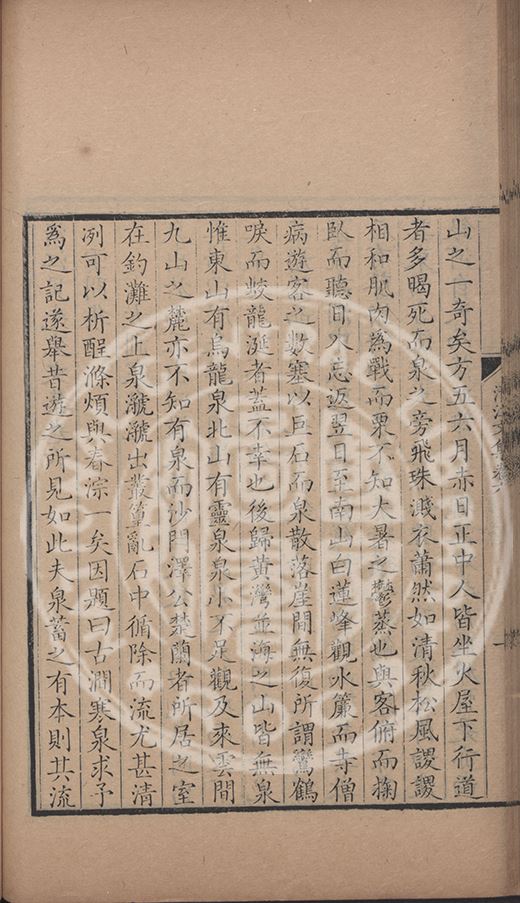 山之一奇矣方五六月赤日正中人皆坐火屋下行道
者多暍死而泉之旁飛珠濺衣蕭然如清秋松風謖謖
相和肌肉為戰而栗不知大暑之鬱蒸也與客俯而掬
臥而聽日入忘返翌日至南山白蓮峰觀水簾而寺僧
病遊客之數塞以巨石而泉散落崖間無復所謂鸞鶴
唳而蛟龍涎者蓋不幸也後歸黃灣並海之山皆無泉
惟東山有烏龍泉北山有靈泉泉小不足觀及來雲間
九山之麓亦不知有泉而沙門澤公楚蘭者所居之室
在釣灘之上泉㶁㶁出叢篁亂石中循除而流尤甚清
冽可以析酲滌煩與春淙一矣因題曰古澗寒泉求予
爲之記遂舉昔遊之所見如此夫泉蓄之有本則其流